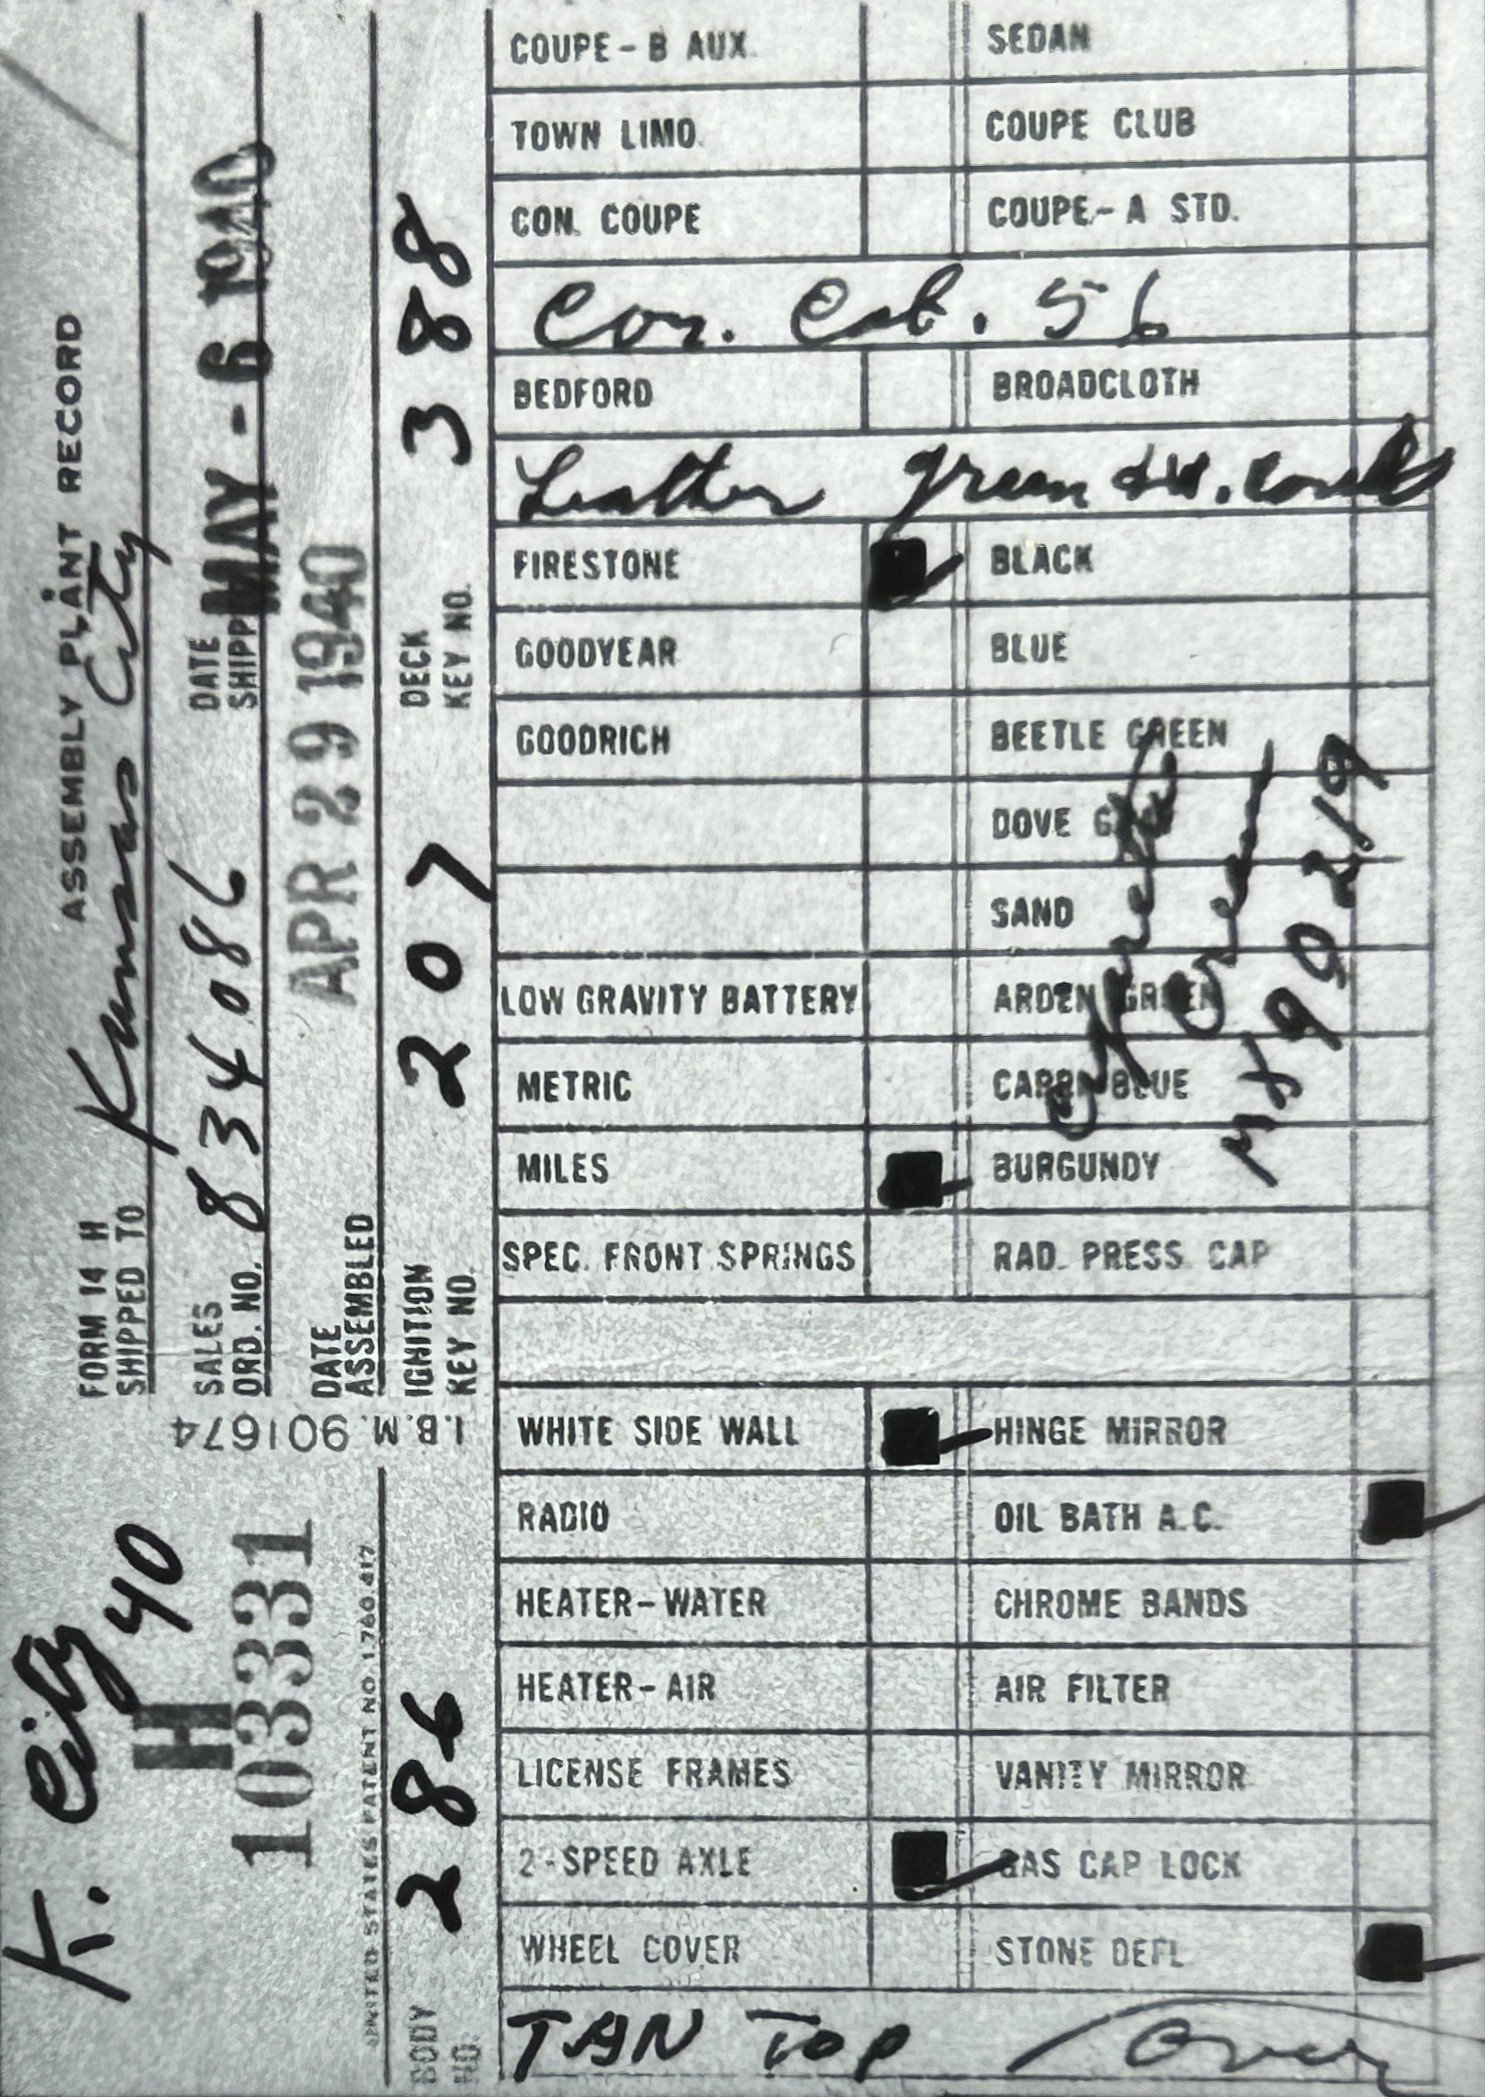 K. City
40
H
103331
UNITED STATES PATENT NO. 1,760,417
BODY NO. 286
I.B.M. 901674
ASSEMBLY PLANT RECORD
FORM 14 H
SHIPPED TO Kansas City
SALES ORD. NO. 834086
DATE SHIPP MAY - 6 1940
DATE ASSEMBLED APR 29 1940
IGNITION KEY NO. 207
DECK KEY NO. 388
COUPE - B AUX. SEDAN
TOWN LIMO. COUPE CLUB
CON. COUPE COUPE - A STD.
Con. Cab. 56
BEDFORD BROADCLOTH
Leather green & W.
FIRESTONE BLACK
GOODYEAR BLUE
GOODRICH BEETLE GREEN
DOVE GRAY
SAND
LOW GRAVITY BATTERY ARDEN GREEN
METRIC CAPRI BLUE
MILES BURGUNDY
Green
SPEC. FRONT SPRINGS RAD. PRESS CAP
WHITE SIDE WALL HINGE MIRROR
RADIO OIL BATH A.C.
HEATER-WATER CHROME BANDS
HEATER-AIR AIR FILTER
LICENSE FRAMES VANITY MIRROR
2-SPEED AXLE GAS CAP LOCK
WHEEL COVER STONE DEFL
TAN TOP Over